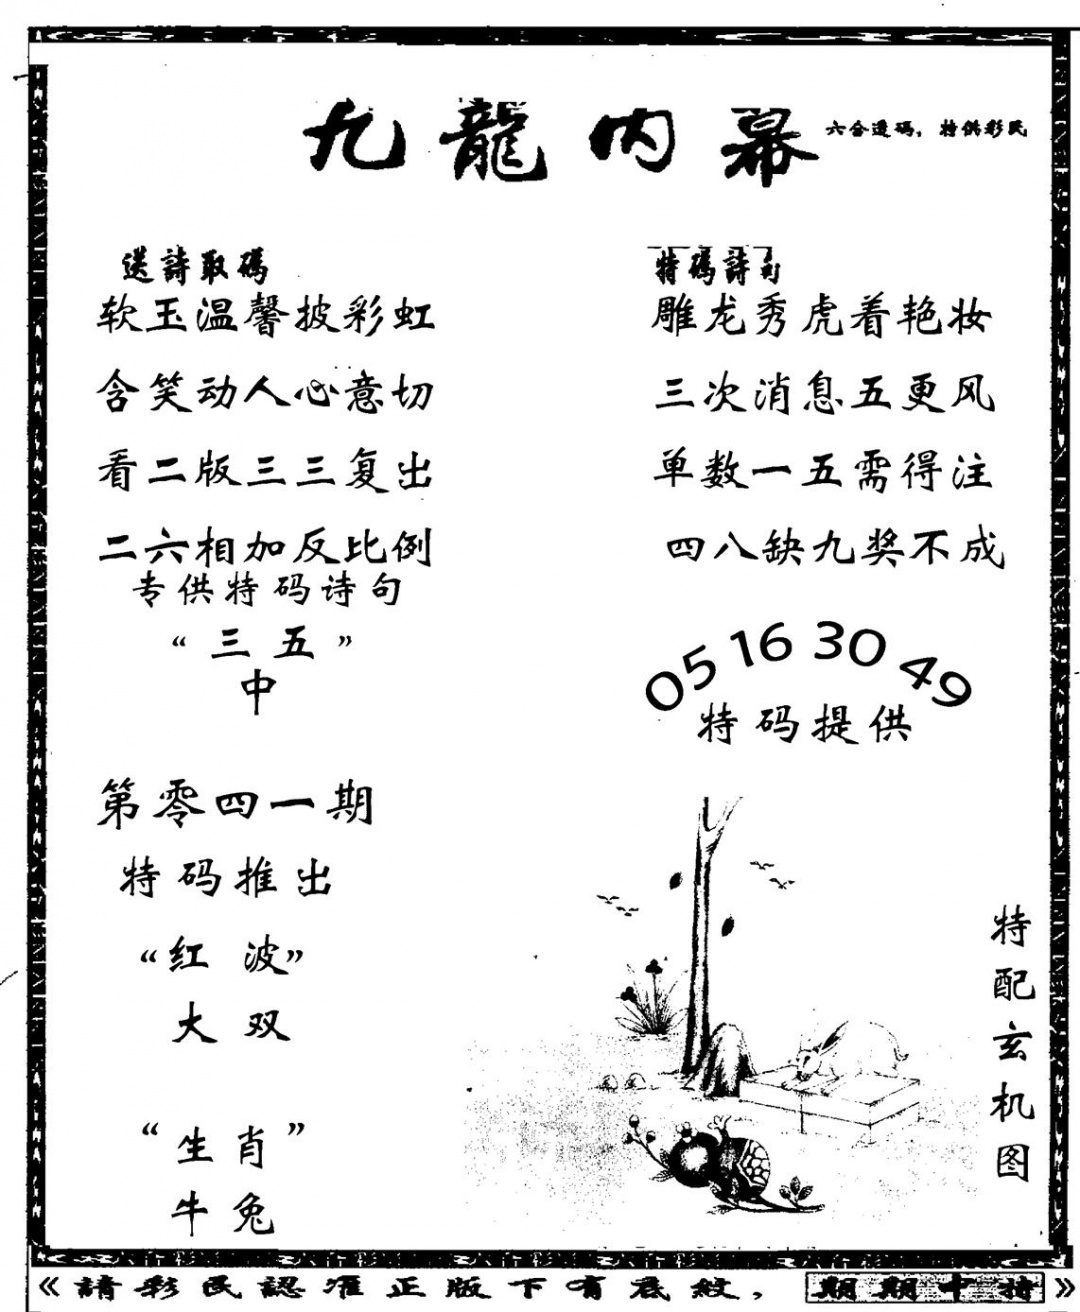 九龍內幕
六合透码，特供彩民
送詩取碼
软玉温馨披彩虹
含笑动人心意切
看二版三三复出
二六相加反比例
专供特码诗句
“三五”
中
特碼詩句
雕龙秀虎着艳妆
三次消息五更风
单数一五需得注
四八缺九奖不成
05 16 30 49
特码提供
第零四一期
特码推出
“红波”
大双
“生肖”
牛兔
特配玄机图
《請彩民認准正版下有底紋，期期中特》